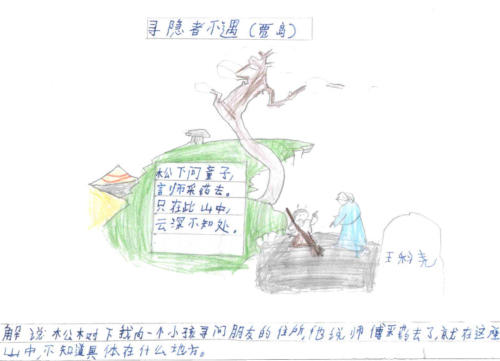 寻隐者不遇(贾岛)
松下问童子,
言师采药去。
只在此山中,
云深不知处。
王科尧
解说 松木树下我向一个小孩寻问朋友的住所,他说师傅采药去了,就在这座
山中,不知道具体在什么地方。